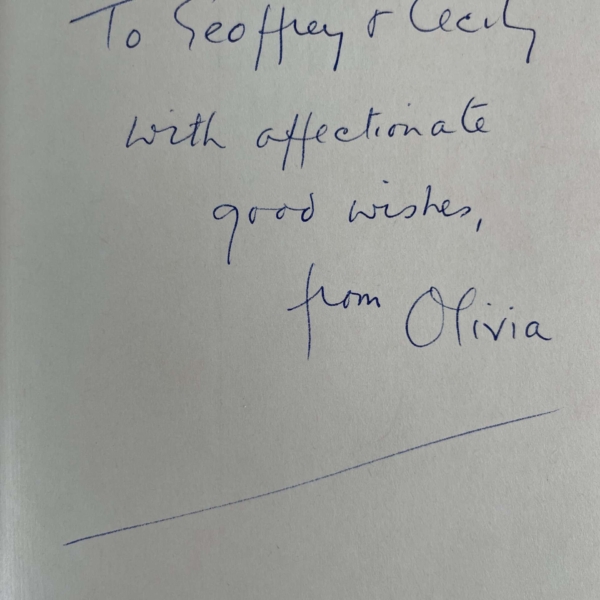 To Geoffrey & Cecily
with affectionate
good wishes,
from Olivia